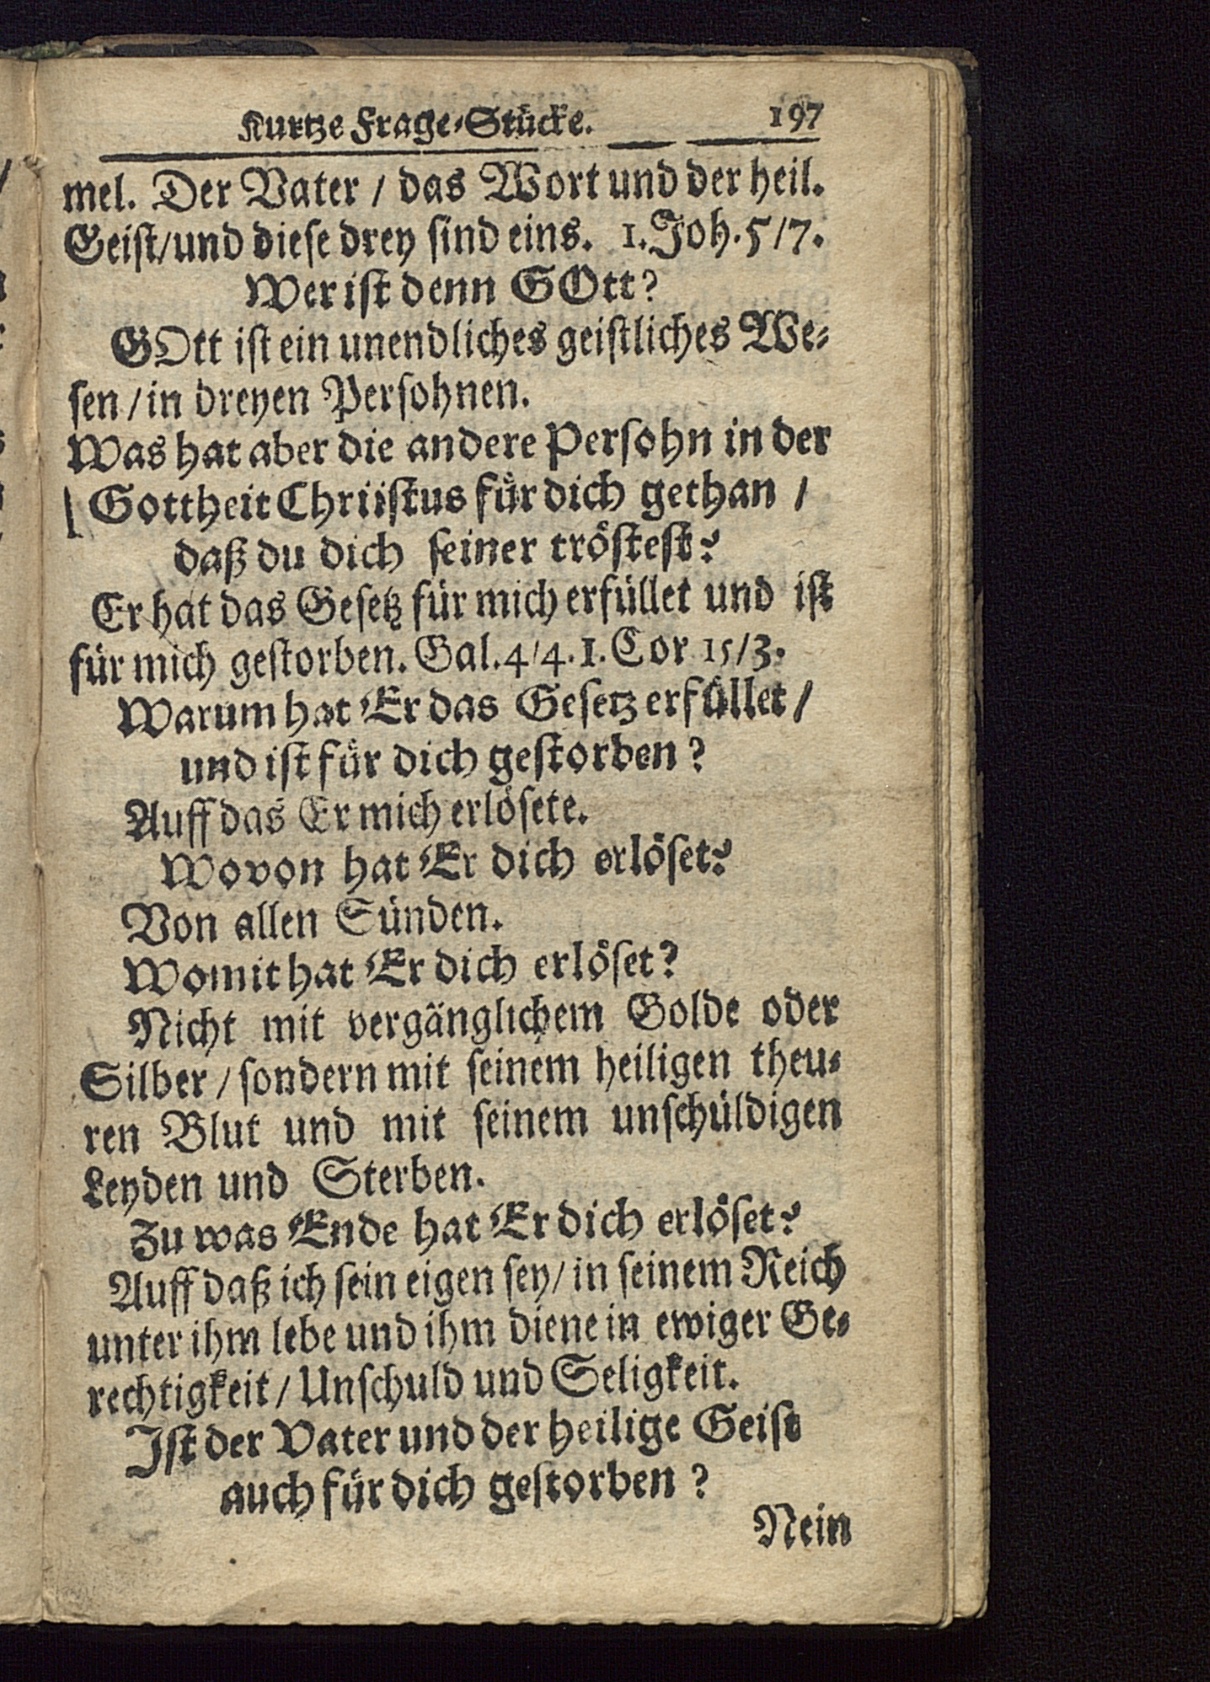 Kurtze Frage-Stücke. 197
mel. Der Vater / das Wort und der heil.
Geist/und diese drey sind eins. 1. Joh. 5/7.
Wer ist denn GOtt?
GOtt ist ein unendliches geistliches We-
sen / in dreyen Persohnen.
Was hat aber die andere Persohn in der
Gottheit Chriistus für dich gethan /
daß du dich seiner tröstest?
Er hat das Gesetz für mich erfüllet und ist
für mich gestorben. Gal. 4/4. 1. Cor 15/3.
Warum hat Er das Gesetz erfüllet /
und ist für dich gestorben?
Auff das Er mich erlösete.
Wovon hat Er dich erlöset?
Von allen Sünden.
Womit hat Er dich erlöset?
Nicht mit vergänglichem Golde oder
Silber / sondern mit seinem heiligen theu-
ren Blut und mit seinem unschüldigen
Leyden und Sterben.
Zu was Ende hat Er dich erlöset?
Auff daß ich sein eigen sey / in seinem Reich
unter ihm lebe und ihm diene in ewiger Ge-
rechtigkeit / Unschuld und Seligkeit.
Ist der Vater und der heilige Geist
auch für dich gestorben?
Nein